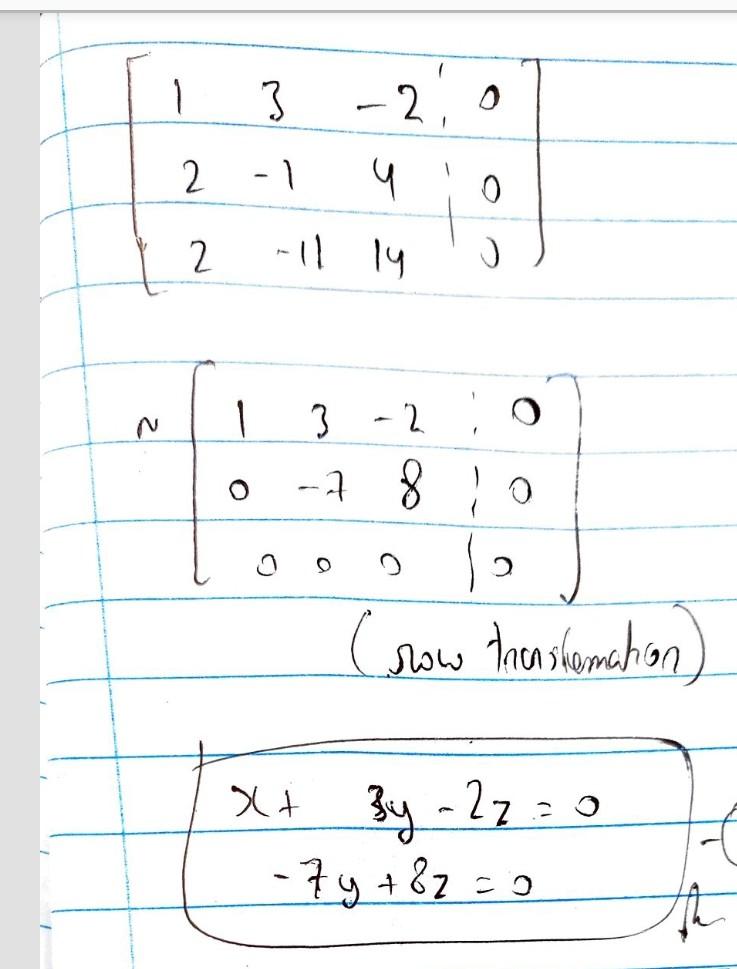 1 3 -2 ¦ 0
2 -1 4 ¦ 0
2 -11 14 ¦ 0
~ 1 3 -2 ¦ 0
0 -7 8 ¦ 0
0 0 0 ¦ 0
(row transformation)
x + 3y - 2z = 0
-7y + 8z = 0